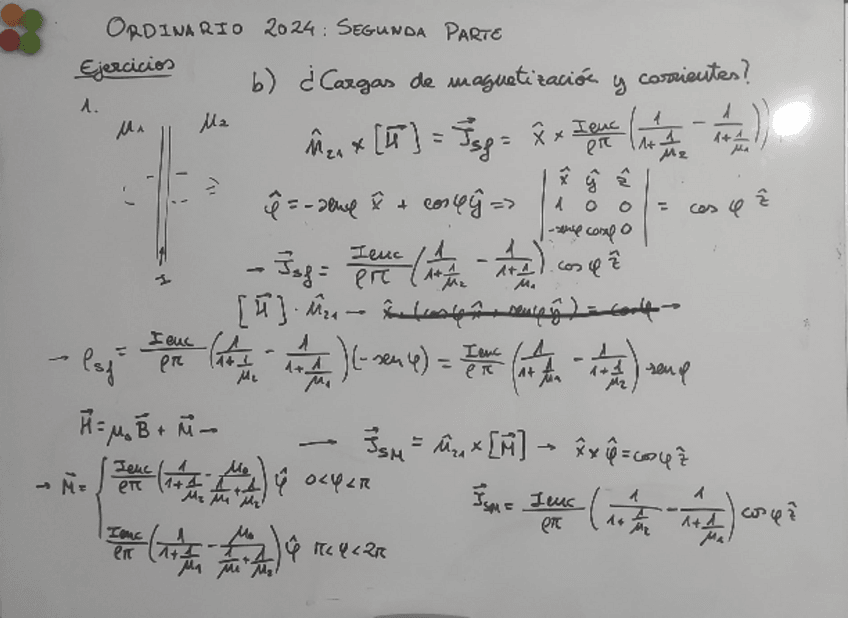 ORDINARIO 2024: SEGUNDA PARTE
Ejercicios
b) ¿Cargas de magnetización y corrientes?
1.
μ₁ μ₂
n̂₂₁ × [H⃗] = J⃗sf = x̂ × Ienc/ρπ (1/(1+1/μ₂) - 1/(1+1/μ₁))
φ̂ = -senφ x̂ + cosφ ŷ => | x̂ ŷ ẑ | 1 0 0 | -senφ cosφ 0 | = cos φ ẑ
→ J⃗sf = Ienc/ρπ (1/(1+1/μ₂) - 1/(1+1/μ₁)) cos φ ẑ
[H⃗] · n̂₂₁ → x̂ · (cosφ x̂ + senφ ŷ) = cosφ →
→ ρsf = Ienc/ρπ (1/(1+1/μ₂) - 1/(1+1/μ₁)) (-sen φ) = Ienc/ρπ (1/(1+1/μ₁) - 1/(1+1/μ₂)) sen φ
H⃗ = μ₀ B⃗ + M⃗ →
→ J⃗SM = n̂₂₁ × [M⃗] → x̂ × φ̂ = cos φ ẑ
→ M⃗ = { Ienc/ρπ (1/(1+1/μ₂) - μ₀/(1/μ₁+1/μ₂)) φ̂ 0<φ<π
Ienc/ρπ (1/(1+1/μ₁) - μ₀/(1/μ₁+1/μ₂)) φ̂ π<φ<2π
J⃗SM = Ienc/ρπ (1/(1+1/μ₂) - 1/(1+1/μ₁)) cos φ ẑ